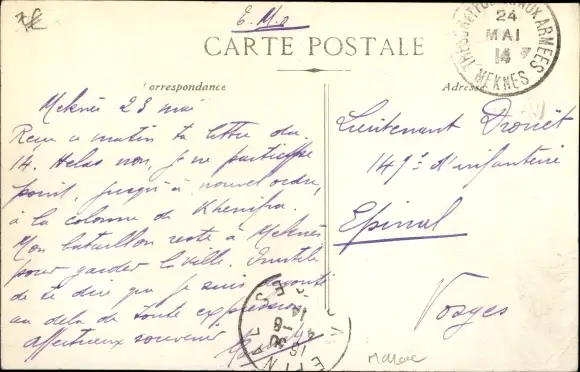 F. M.
CARTE POSTALE
TRESOR ET POSTES AUX ARMÉES
24
MAI
14
MEKNES
Correspondance
Adresse
Meknès 23 mai
Reçu ce matin ta lettre du
14. Hélas non, je ne participe
point, jusqu'à nouvel ordre,
à la colonne de Khenifra.
Mon bataillon reste à Meknès
pour garder la ville. Inutile
de te dire que je suis
au delà de toute expression
affectueux souvenir
Lieutenant Drouët
149e d'infanterie
Epinal
Vosges
EPINAL
Maroc